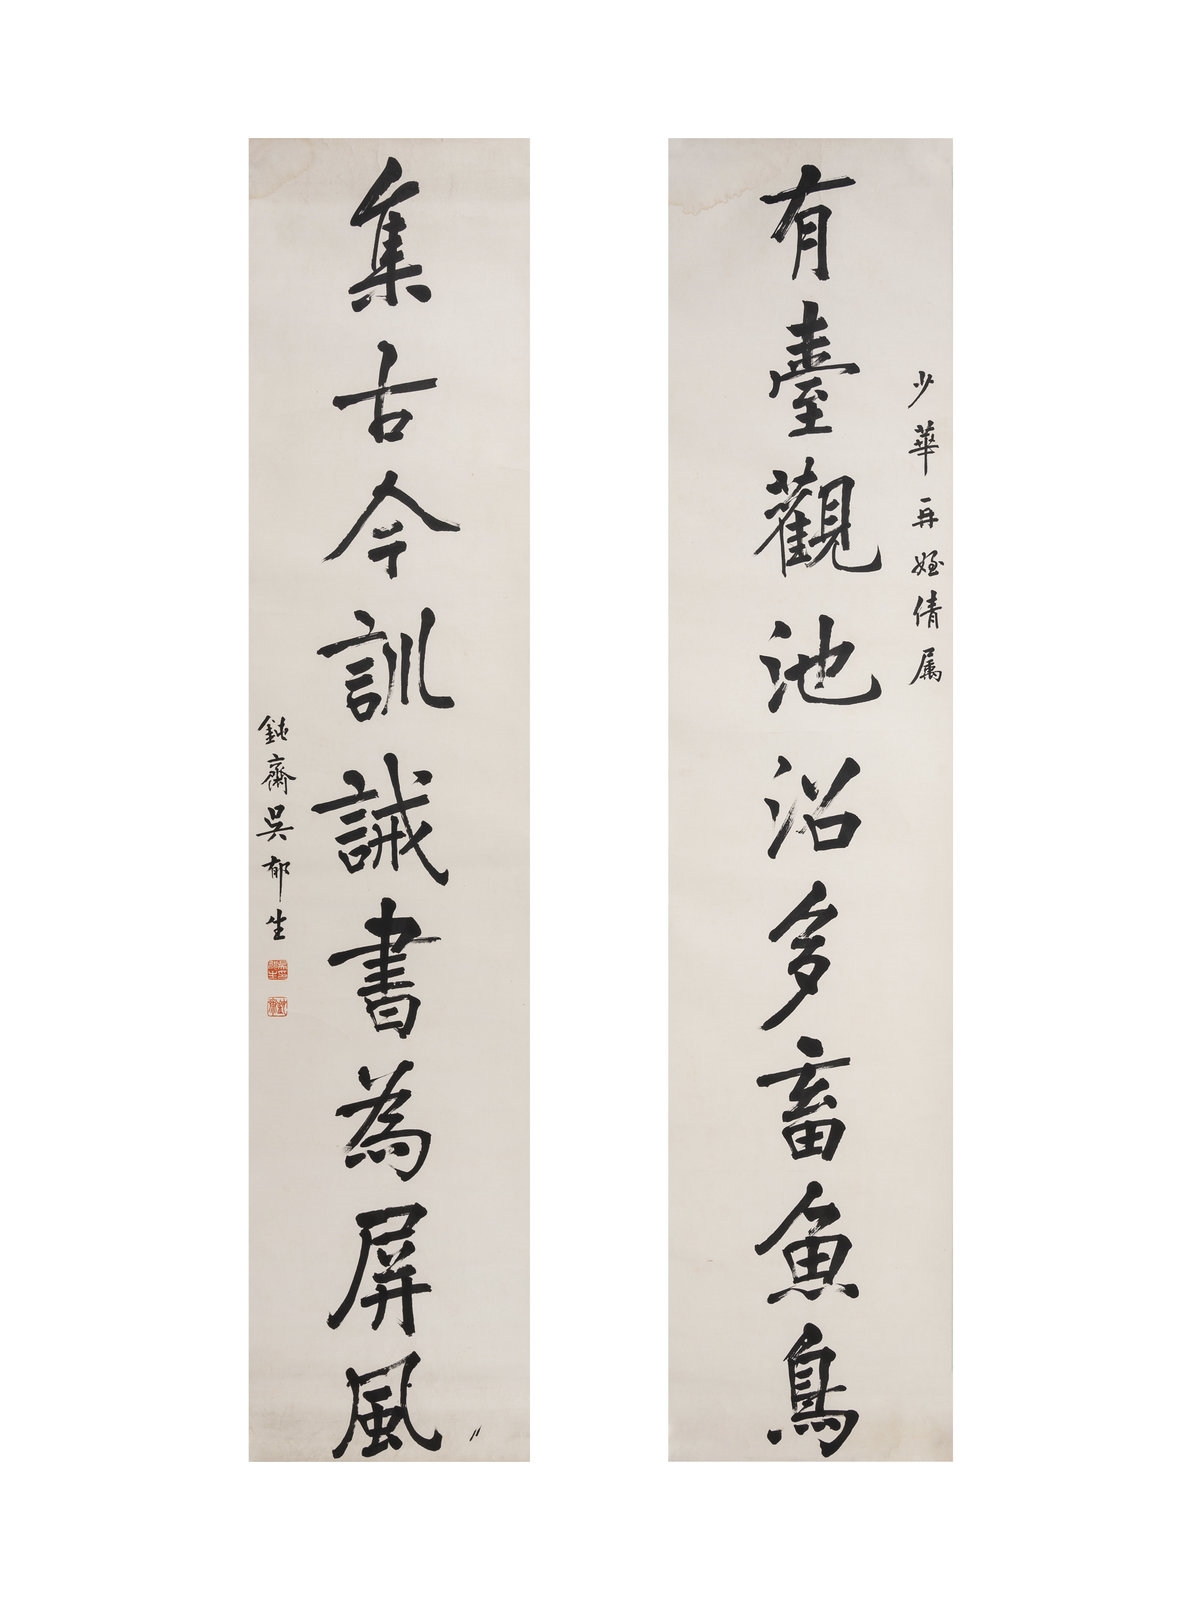 少華再姪倩属
有臺觀池沼多畜魚鳥
集古今訓誡書為屏風
鈍齋吴郁生